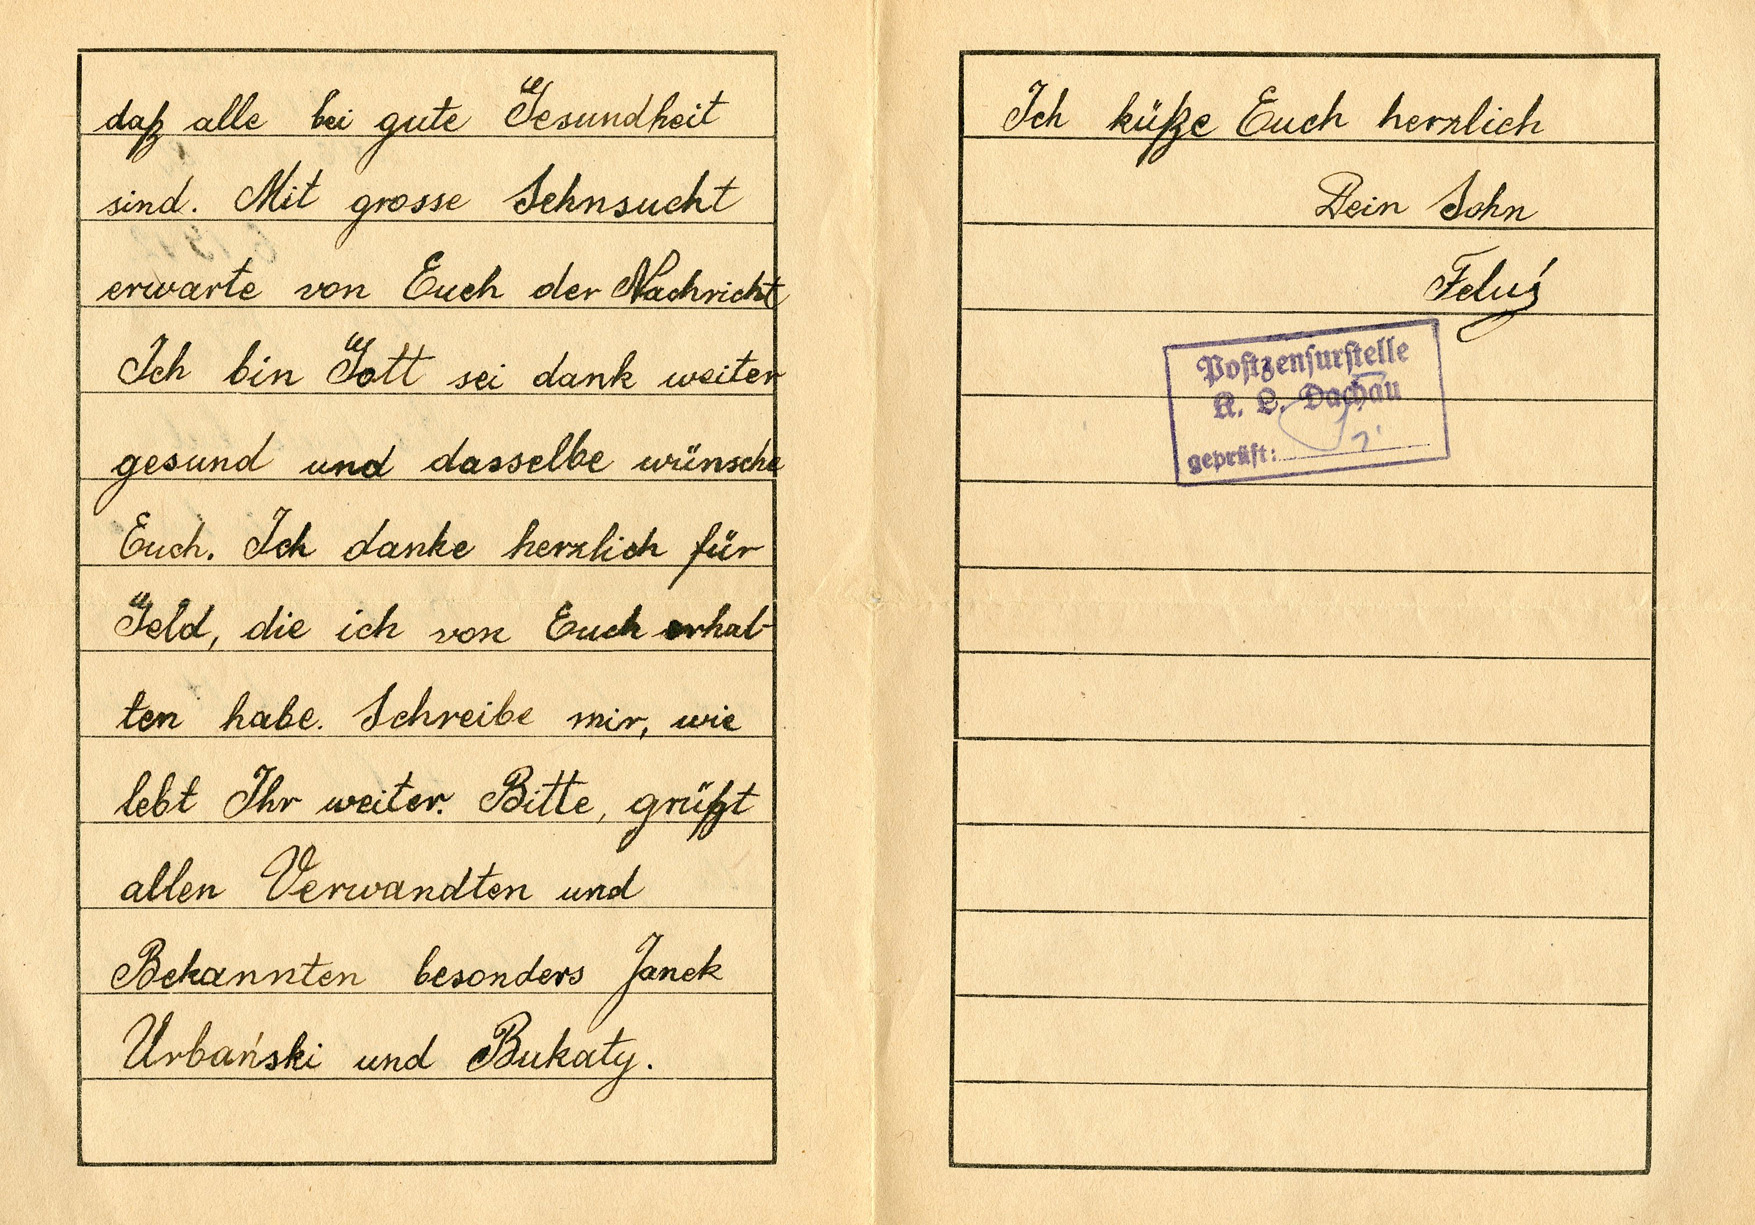 daß alle bei gute Gesundheit
sind. Mit grosse Sehnsucht
erwarte von Euch der Nachricht
Ich bin Gott sei dank weiter
gesund und dasselbe wünsche
Euch. Ich danke herzlich für
Geld, die ich von Euch erhal-
ten habe. Schreibe mir, wie
lebt Ihr weiter. Bitte, grüßt
allen Verwandten und
Bekannten besonders Janek
Urbański und Bukaty.
Ich küße Euch herzlich
Dein Sohn
Feluś
Postzensurstelle
K. L. Dachau
geprüft: